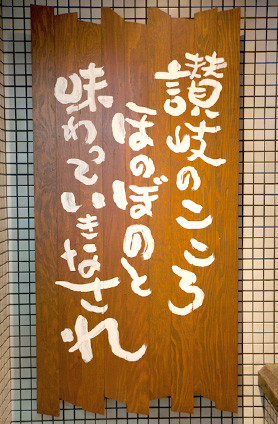 讃岐のこころ
ほのぼのと
味わっていきなされ